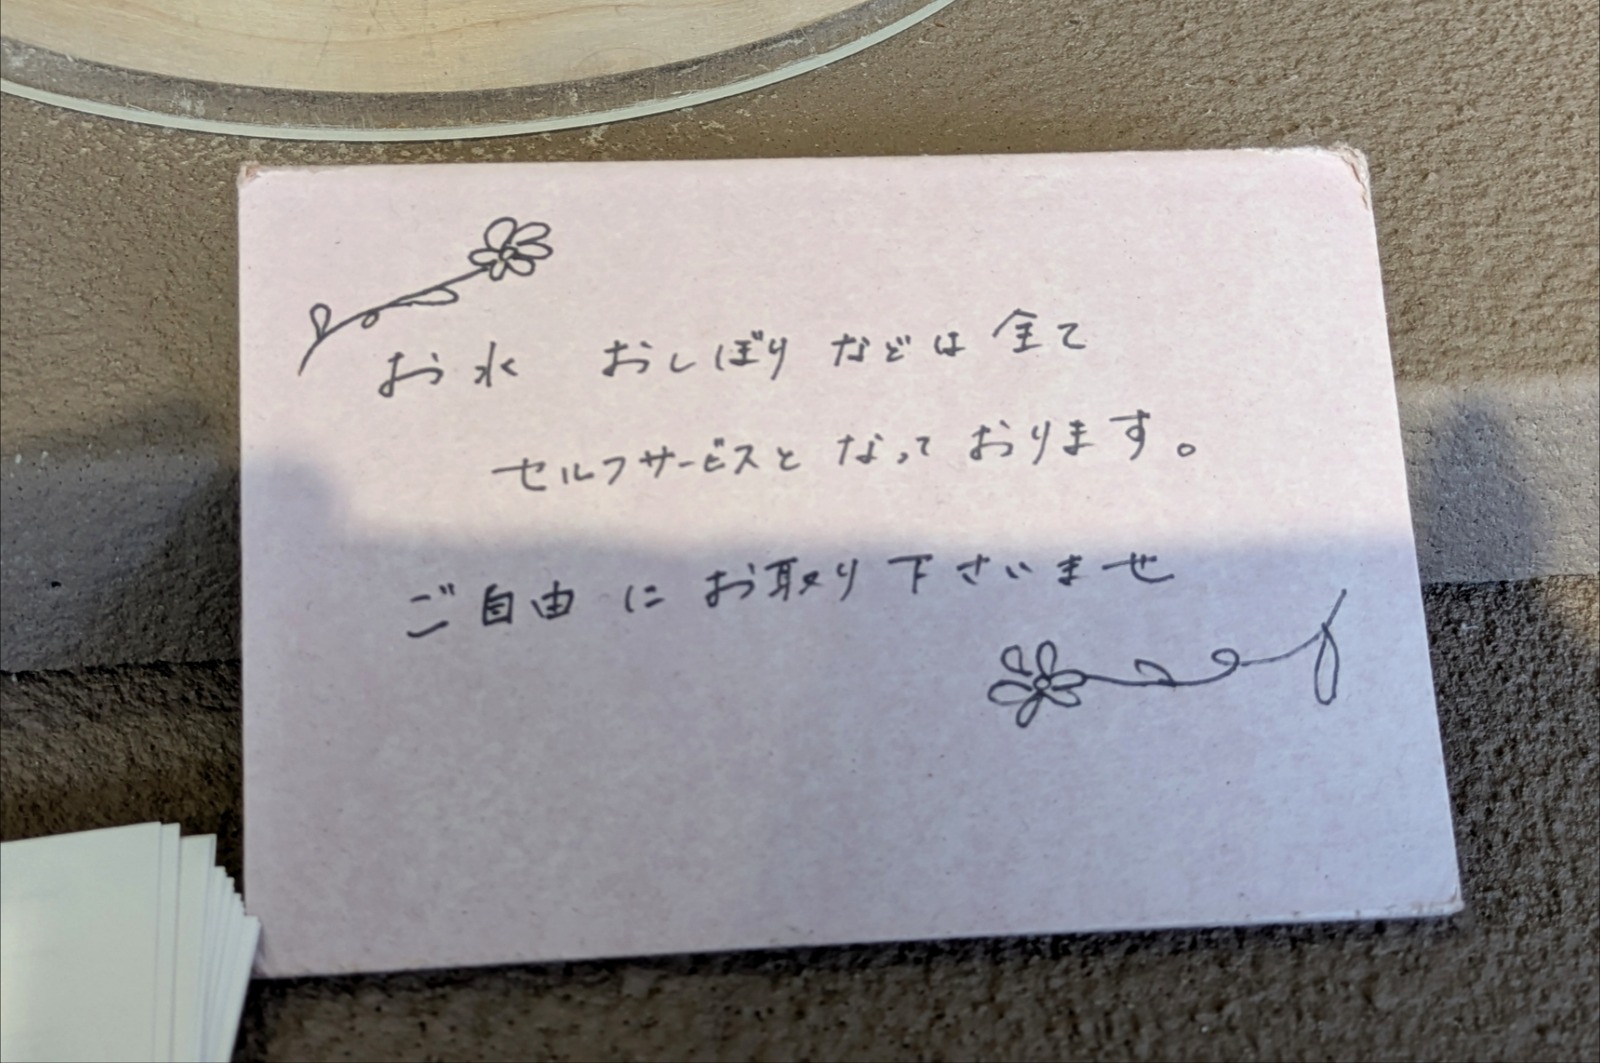 お水　おしぼり などは 全て
セルフサービスと なって おります。
ご自由 に お取り 下さいませ